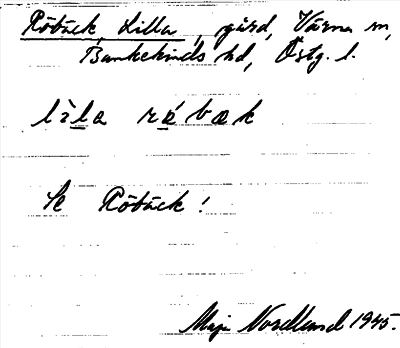 Röbäck Lilla, gård, Värna sn,
Bankekinds hd, Östg. l.
lìla ròbæk
Se Röbäck!
Maja Nordlund 1945.